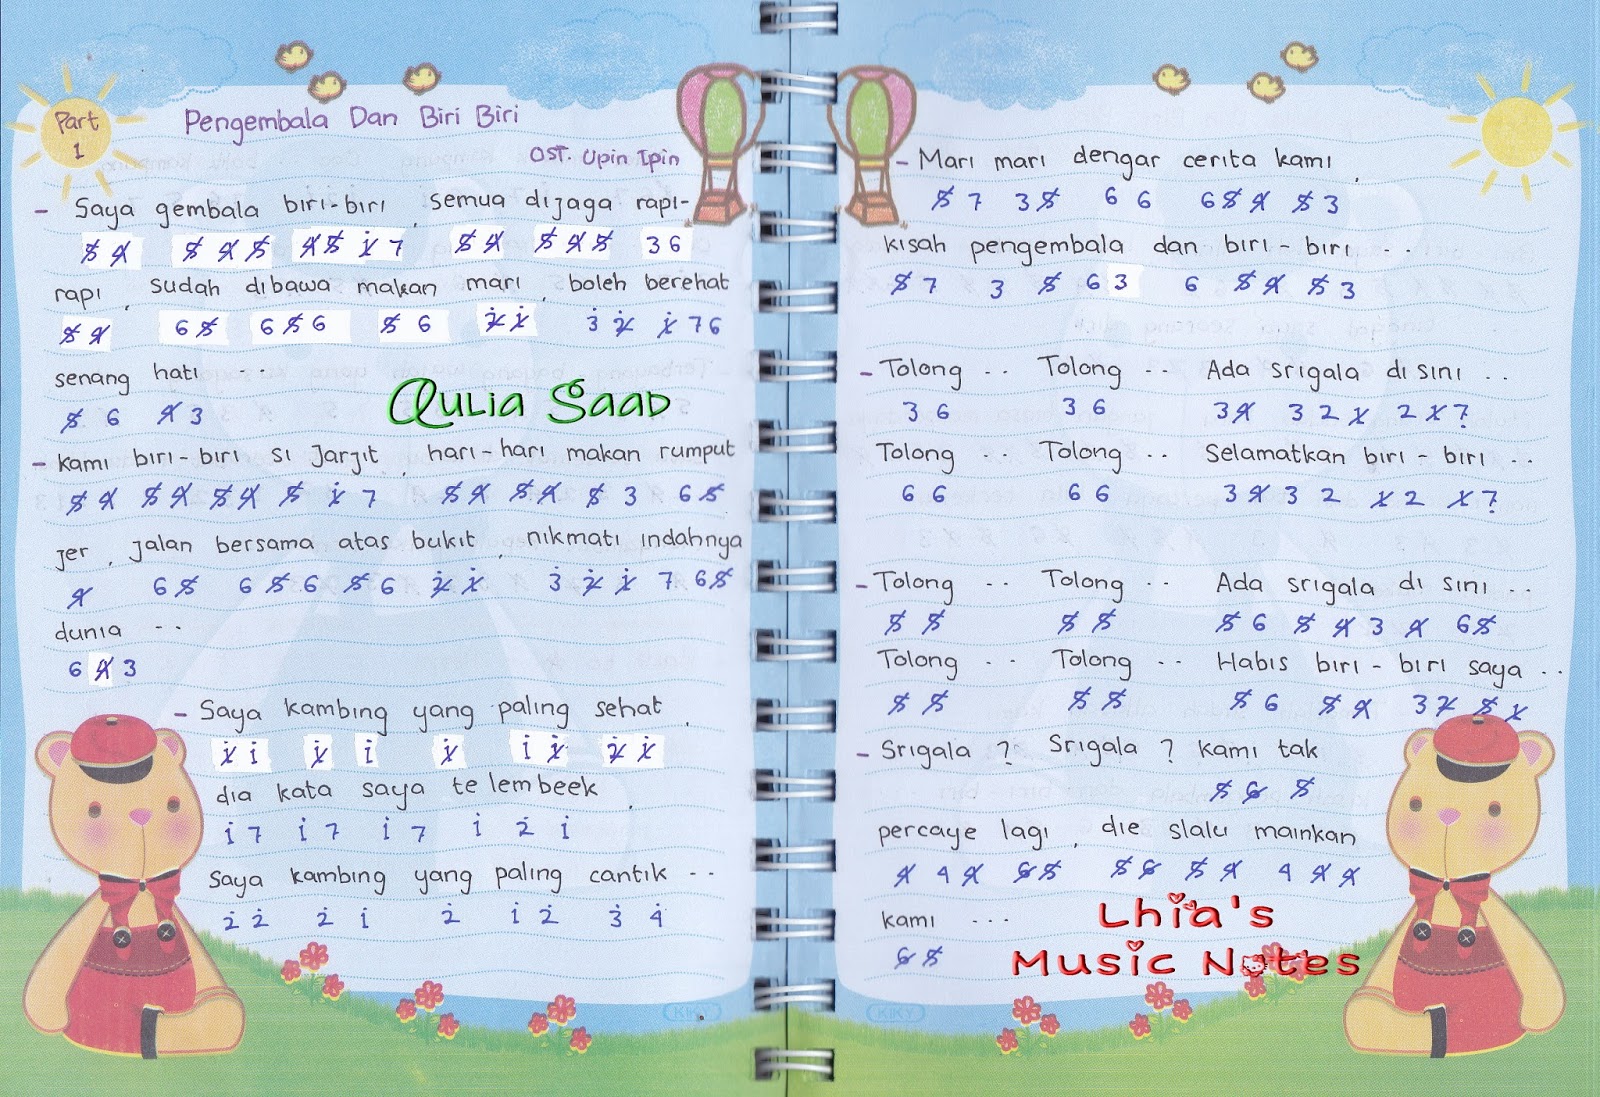 Part
1
Pengembala Dan Biri Biri
OST. Upin Ipin
- Saya gembala biri-biri, semua dijaga rapi-
5̸ 4̸ 5̸ 4̸ 5̸ 4̸ 5̸ i̸ 7 5̸ 4̸ 5̸ 4̸ 5̸ 3 6
rapi, sudah dibawa makan mari, boleh berehat
5̸ 4̸ 6 5̸ 6 5̸ 6 5̸ 6 2̸̇ i̸ 3̇ 2̸̇ i̸ 7 6
senang hati ..
5̸ 6 4̸ 3
- Kami biri-biri si Jarjit, hari-hari makan rumput
5̸ 4̸ 5̸ 4̸ 5̸ 4̸ 5̸ i̸ 7 5̸ 4̸ 5̸ 4̸ 5̸ 3 6 5̸
jer, jalan bersama atas bukit, nikmati indahnya
4̸ 6 5̸ 6 5̸ 6 5̸ 6 2̸̇ i̸ 3̇ 2̸̇ i̸ 7 6 5̸
dunia ..
6 4̸ 3
- Saya kambing yang paling sehat,
i̸ i i̸ i i̸ i i̸ 2̸̇ i̸
dia kata saya te lembeek,
i 7 i 7 i 7 i 2̇ i
Saya kambing yang paling cantik ..
2̇ 2̇ 2̇ i 2̇ i 2̇ 3̇ 4̇
Qulia Saad
KIKY
- Mari mari dengar cerita kami,
5̸ 7 3 5̸ 6 6 6 5̸ 4̸ 5̸ 3
kisah pengembala dan biri-biri ...
5̸ 7 3 5̸ 6 3 6 5̸ 4̸ 5̸ 3
- Tolong .. Tolong .. Ada srigala di sini ..
3 6 3 6 3 4̸ 3 2 1̸ 2 1̸ 7̣
Tolong .. Tolong .. Selamatkan biri-biri ..
6 6 6 6 3 4̸ 3 2 1̸ 2 1̸ 7̣
- Tolong .. Tolong .. Ada srigala di sini ..
5̸ 5̸ 5̸ 5̸ 5̸ 6 5̸ 4̸ 3 4̸ 6 5̸
Tolong .. Tolong .. Habis biri-biri saya ..
5̸ 5̸ 5̸ 5̸ 5̸ 6 5̸ 4̸ 3 2̸ 5̸ 1̸
- Srigala ? Srigala ? Kami tak
5̸ 6̸ 5̸
percaye lagi, die slalu mainkan
4̸ 4 4̸ 6̸ 5̸ 5̸ 6̸ 5̸ 4̸ 4 4̸ 4̸
kami ...
6̸ 5̸
Lhia's
Music Notes
KIKY